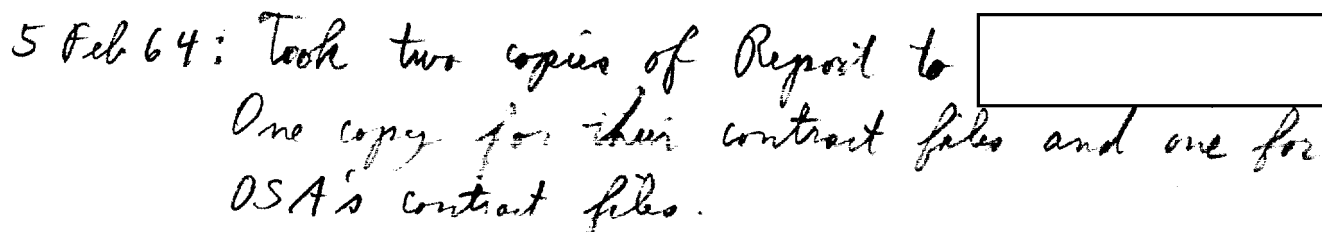 5 Feb 64: Took two copies of Report to
One copy for their contract files and one for
OSA's contract files.